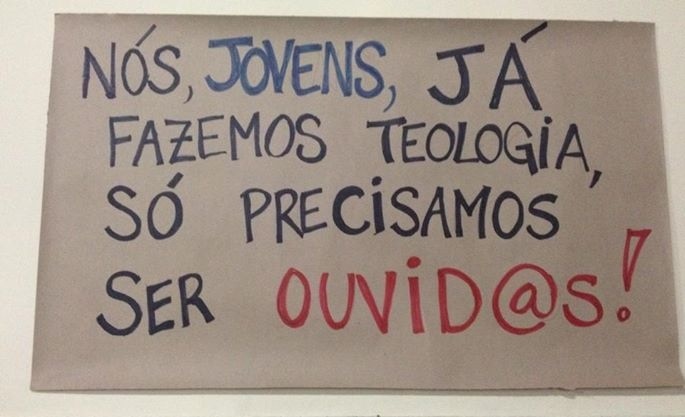 NÓS, JOVENS, JÁ
FAZEMOS TEOLOGiA,
SÓ PRECiSAMOS
SER OUViD@S!